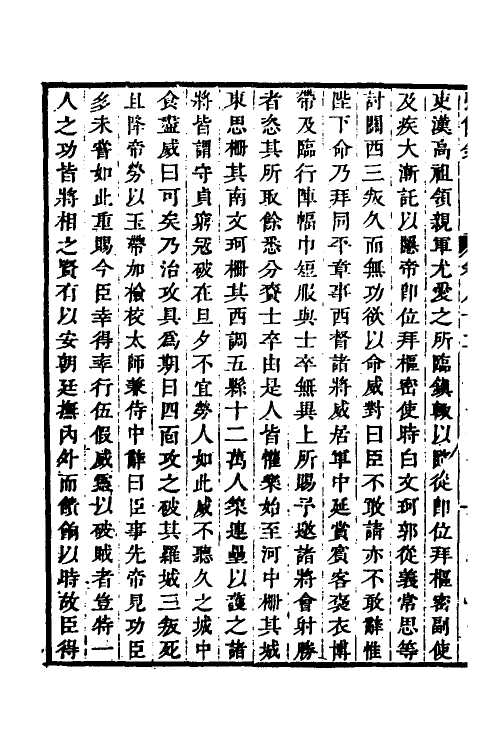 吏漢高祖領親軍尤愛之所臨鎮輙以時從即位拜樞密副使
及疾大漸託以隱帝即位拜樞密使時白文珂郭從義常思等
討關西三叛久而無功欲以命威對曰臣不敢請亦不敢辭惟
陛下命乃拜同平章事西督諸將威居軍中延賞賓客褒衣博
帶及臨行陣幅巾短服與士卒無異上所賜予邀諸將會射勝
者恣其所取餘悉分賚士卒由是人皆懽樂始至河中柵其城
東思柵其南文珂柵其西調五縣十二萬人築連壘以護之諸
將皆謂守貞窮寇破在旦夕不宜勞人如此威不聽久之城中
食盡威曰可矣乃治攻具為期日四面攻之破其羅城三叛死
且降帝勞以玉帶加檢校太師兼侍中辭曰臣事先帝見功臣
多未嘗如此重賜今臣幸得率行伍假威靈以破賊者豈特一
人之功皆將相之賢有以安朝廷撫內外而餽餉以時故臣得